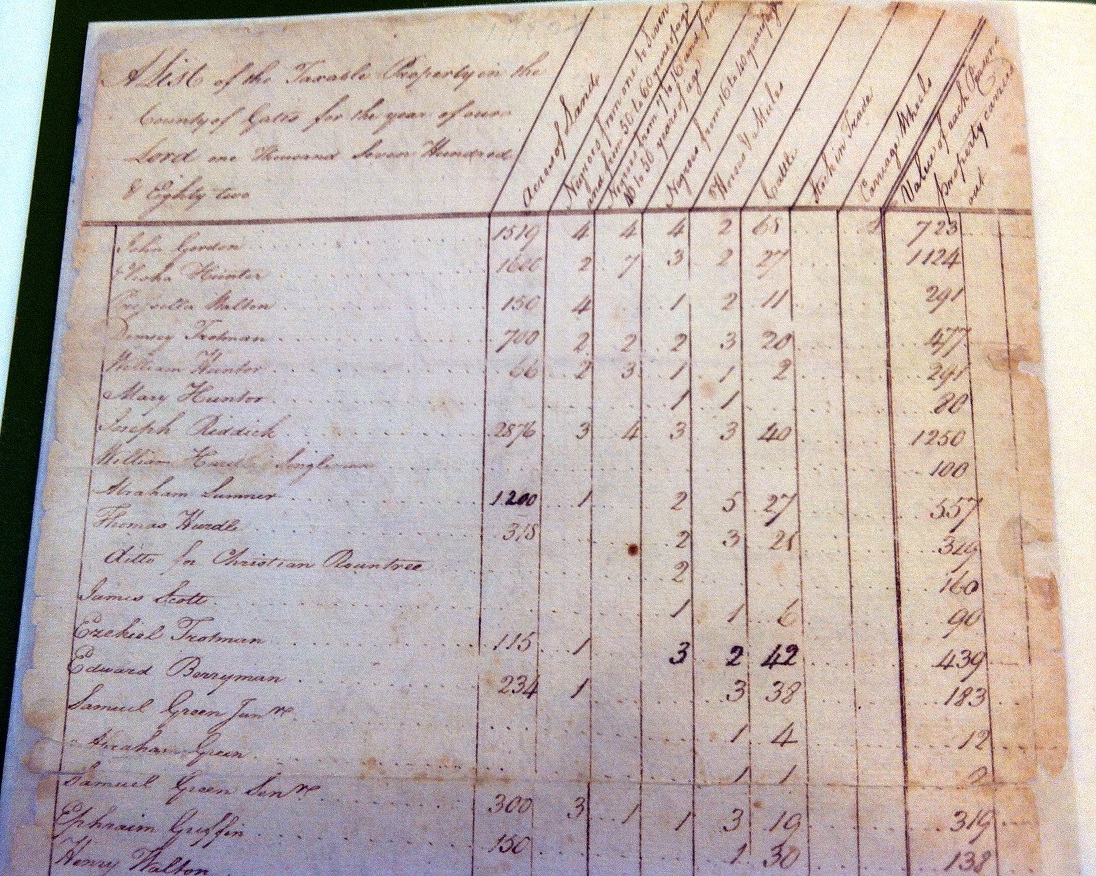 A List of the Taxable Property in the
County of Gates for the year of our
Lord one Thousand Seven Hundred
& Eighty two
Acres of Land
Negroes from one to Seven
and from 50 to 60 years of age
Negroes from 7 to 16 and from
40 to 50 years of age
Negroes from 16 to 40 years of age
Horses & Mules
Cattle
Stock in Trade
Carriage Wheels
Value of each
property carried
out
John Gordon 1519 4 4 4 2 68 4 723
Elisha Hunter 1600 2 7 3 2 27 1124
Walton 150 4 1 2 11 291
Demsey Trotman 700 2 2 2 3 20 477
William Hunter 66 2 3 1 1 2 291
Mary Hunter 1 1 80
Joseph Riddick 2876 3 4 3 3 40 1250
William Singleman 100
Abraham Sumner 1200 1 2 5 27 557
Thomas Hurdle 318 2 3 21 349
ditto for Christian Rountree 2 160
James Scott 1 1 6 90
Ezekiel Trotman 115 1 3 2 42 439
Edward Berryman 234 1 3 38 183
Samuel Green Junr 1 4 12
Abraham Green 1 1 2
Samuel Green Senr 300 3 1 1 3 19 319
Ephraim Griffin 150 1 30 138
Henry Walton